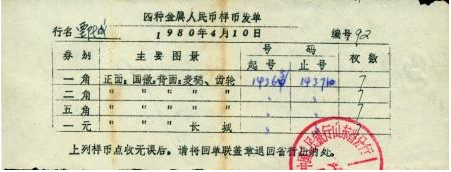 四种金属人民币样币发单
行名 1980年4月10日 编号902
券别 主要图景 号码 枚数
起号 止号
一角 正面：国徽，背面：麦穗、齿轮 7
二角 〃 〃 〃 〃 〃 〃 〃 7
五角 〃 〃 〃 〃 〃 〃 〃 7
一元 〃 〃 〃 长城 〃 〃 7
上列样币点收无误后，请将回单联盖章退回省行出纳处。
中国人民银行山东省分行